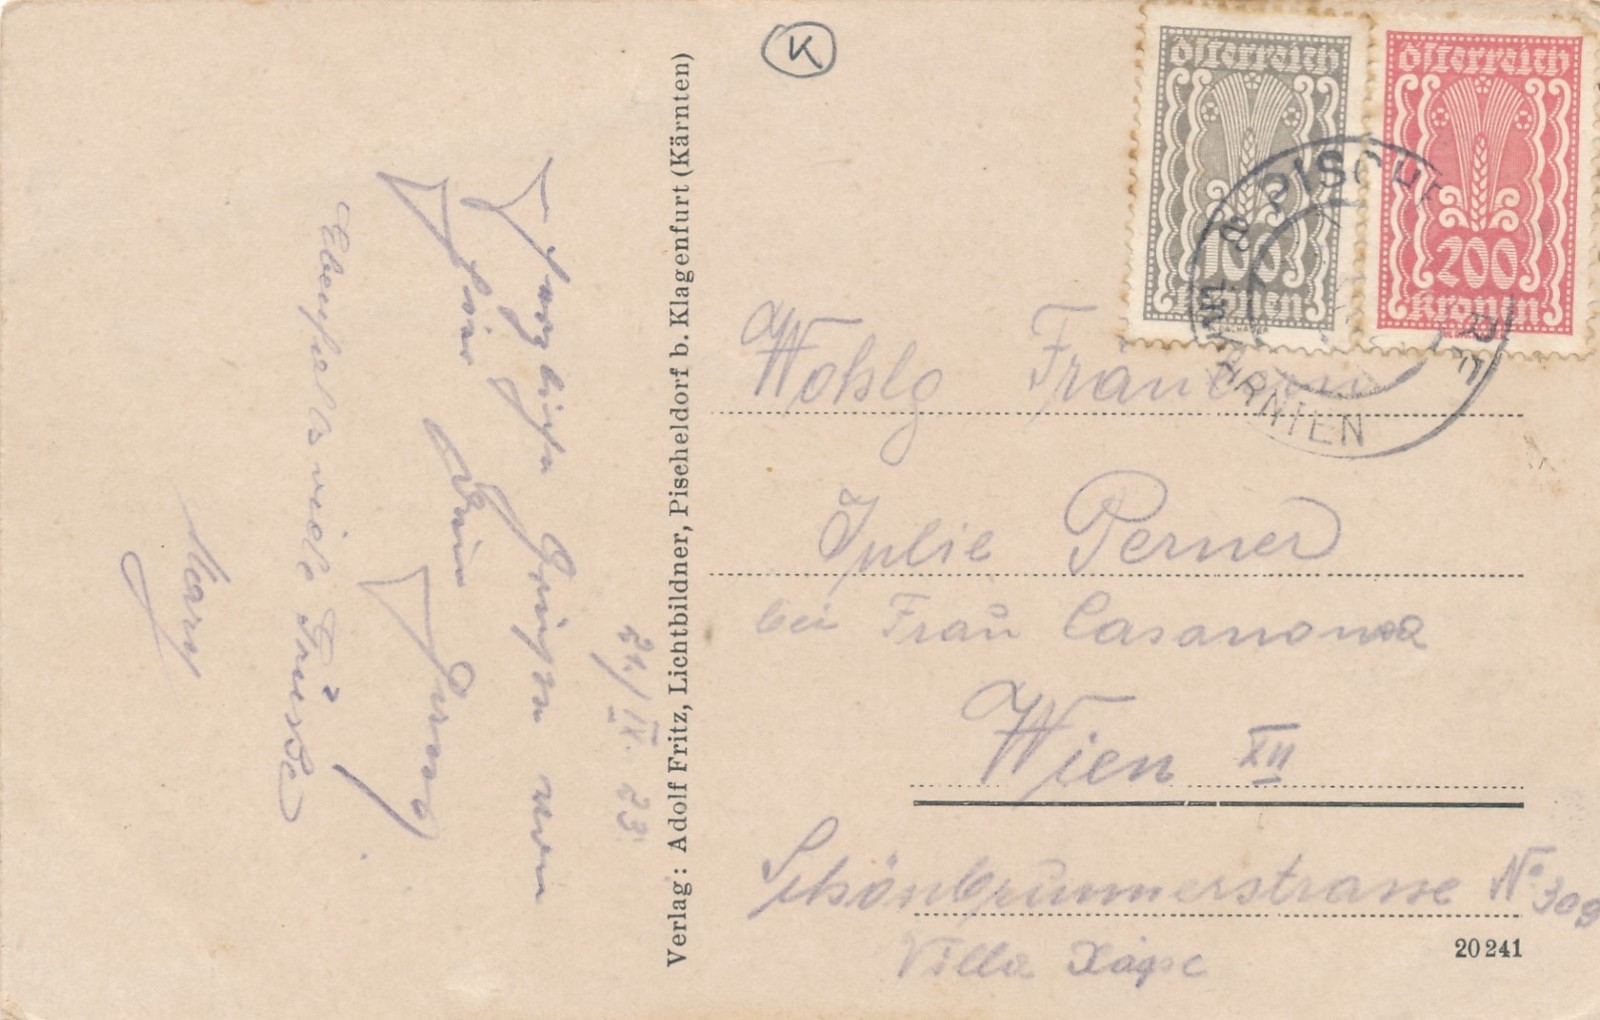 K
Österreich
100
Kronen
Österreich
200
Kronen
PISCHE
KÄRNTEN
21./IX. 23.
Herzliche Grüße von
Deine
Ebenfalls viele Grüsse
Mary
Verlag: Adolf Fritz, Lichtbildner, Pischeldorf b. Klagenfurt (Kärnten)
Wohlg Fräulein
Julie Perner
bei Frau Casanova
Wien XII
Schönbrunnerstrasse No 309
Villa
20241